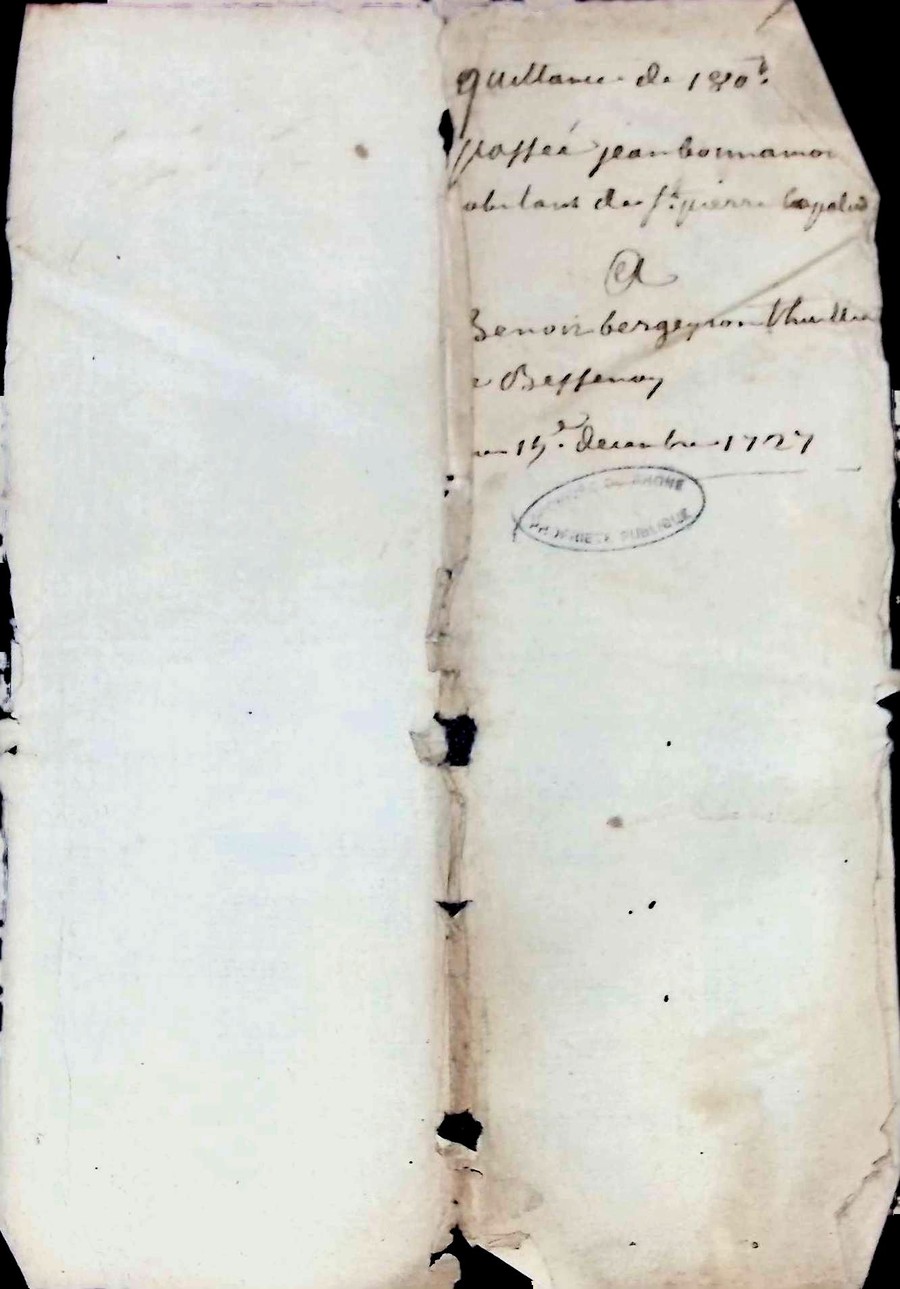 quittance de 180 lt
passeé jean bonnamou
abitant de st. pierre
A
Benoit bergeyron thuillier
e Bessenay
15e. decembre 1727
DU RHONE
PROPRIETE PUBLIQUE